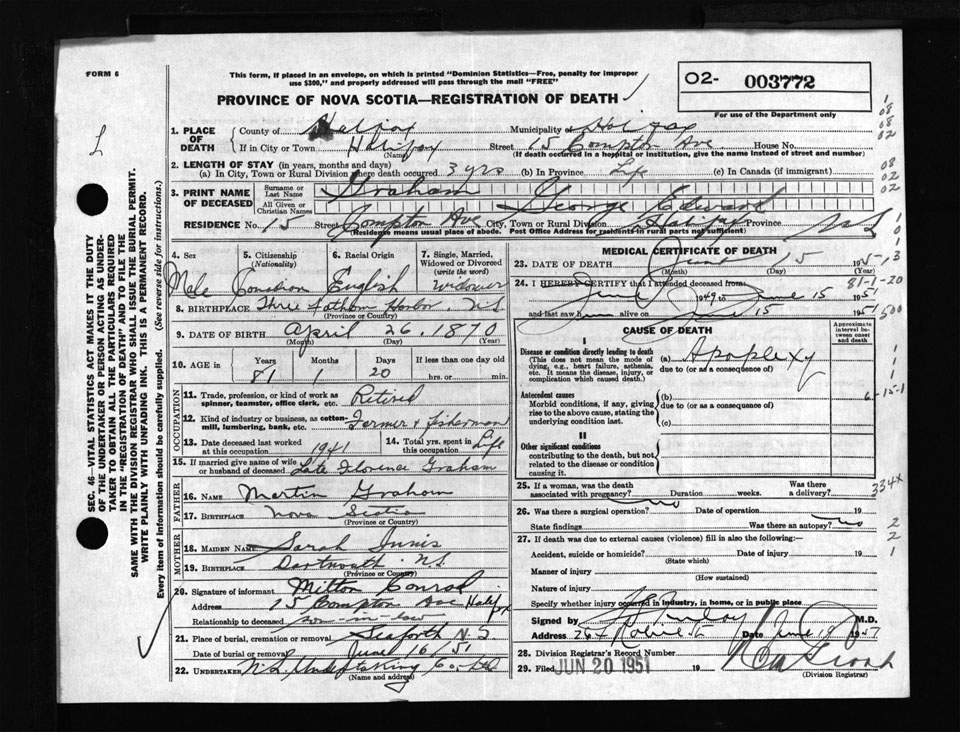 FORM 6
This form, if placed in an envelope, on which is printed "Dominion Statistics—Free, penalty for improper
use $300," and properly addressed will pass through the mail "FREE"
O2- 003772
PROVINCE OF NOVA SCOTIA—REGISTRATION OF DEATH
For use of the Department only
L
SEC. 46—VITAL STATISTICS ACT MAKES IT THE DUTY
OF THE UNDERTAKER OR PERSON ACTING AS UNDER-
TAKER TO OBTAIN ALL THE PARTICULARS REQUIRED
IN THE "REGISTRATION OF DEATH" AND TO FILE THE
SAME WITH THE DIVISION REGISTRAR WHO SHALL ISSUE THE BURIAL PERMIT.
WRITE PLAINLY WITH UNFADING INK. THIS IS A PERMANENT RECORD.
Every item of information should be carefully supplied. (See reverse side for instructions.)
1. PLACE OF DEATH County of Halifax Municipality of Halifax
If in City or Town Halifax (Name) Street 15 Compton Ave. House No.
(If death occurred in a hospital or institution, give name instead of street and number)
2. LENGTH OF STAY (in years, months and days)
(a) In City, Town or Rural Division where death occurred 3 yrs (b) In Province Life (c) In Canada (if immigrant)
3. PRINT NAME OF DECEASED Surname or Last Name Graham
All Given or Christian Names George Edward
RESIDENCE No. 15 Street Compton Ave City, Town or Rural Division Halifax Province NS
(Residence means usual place of abode. Post Office Address for residents in rural parts not sufficient)
4. Sex 5. Citizenship (Nationality) 6. Racial Origin 7. Single, Married, Widowed or Divorced (write the word)
Male Canadian English Widower
8. BIRTHPLACE Three Fathom Harbor, N.S.
(Province or Country)
9. DATE OF BIRTH April 26. 1870
(Month) (Day) (Year)
10. AGE Years Months Days If less than one day old
81 1 20 hrs. or min.
OCCUPATION
11. Trade, profession, or kind of work as spinner, teamster, office clerk, etc. Retired
12. Kind of industry or business, as cotton-mill, lumbering, bank, etc. Farmer & fisherman
13. Date deceased last worked at this occupation 1941 14. Total yrs. spent in this occupation Life
15. If married give name of wife or husband of deceased Late Florence Graham
FATHER
16. NAME Martin Graham
17. BIRTHPLACE Nova Scotia
(Province or Country)
MOTHER
18. MAIDEN NAME Sarah Innis
19. BIRTHPLACE Dartmouth N.S.
(Province or Country)
20. Signature of informant Milton Conrod
Address 15 Compton Ave Halifax
Relationship to deceased son-in-law
21. Place of burial, cremation or removal Seaforth N.S.
Date of burial or removal June 16/51
22. UNDERTAKER N.S. Undertaking Co. Ltd
(Name and address)
MEDICAL CERTIFICATE OF DEATH
23. DATE OF DEATH June 15 1951
(Month) (Day) (Year)
81-1-20
24. I HEREBY CERTIFY that I attended deceased from
June 1949 to June 15 1951
and last saw him alive on 15 1951
CAUSE OF DEATH
Approximate interval between onset and death
I
Disease or condition directly leading to death
(This does not mean the mode of dying, e.g., heart failure, asthenia, etc. It means the disease, injury, or complication which caused death.)
(a) Apoplexy
due to (or as a consequence of)
Antecedent causes
Morbid conditions, if any, giving rise to the above cause, stating the underlying condition last.
(b)
due to (or as a consequence of)
(c)
6-15-1
II
Other significant conditions contributing to the death, but not related to the disease or condition causing it.
25. If a woman, was the death associated with pregnancy? Duration weeks. Was there a delivery?
334x
26. Was there a surgical operation? no Date of operation 19
State findings Was there an autopsy? no
27. If death was due to external causes (violence) fill in also the following:—
Accident, suicide or homicide? (State which) Date of injury 19
Manner of injury (How sustained)
Nature of injury
Specify whether injury occurred in industry, in home, or in public place
Signed by M.D.
Address 264 Robie St Date June 18 1951
28. Division Registrar's Record Number
29. Filed JUN 20 1951 19
(Division Registrar)